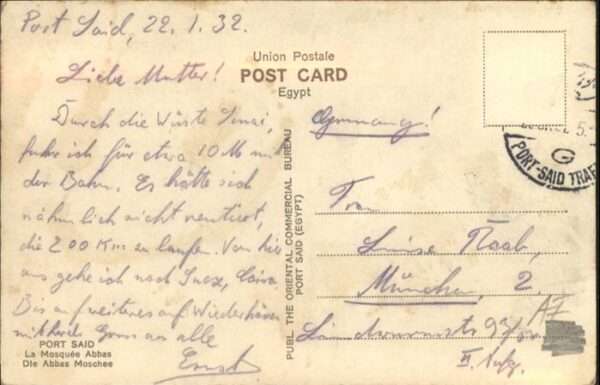 Port Said, 22.1.32.
Liebe Mutter!
Durch die Wüste Sinai,
fuhr ich für etwa 10 M mit
der Bahn. Es hätte sich
nähmlich nicht rentiert,
die 200 Km zu laufen. Von hier
aus gehe ich nach Suez, Cairo
Bis auf weiteres auf Wiederhören
mit Gruss an alle
Ernst
PORT SAID
La Mosquée Abbas
Die Abbas Moschee
Union Postale
POST CARD
Egypt
PUBL. THE ORIENTAL COMMERCIAL BUREAU
PORT SAID (EGYPT)
PORT-SAID TRAF
G
Germany!
Frau
Luise Raab,
München, 2.
II. Aufg.
A7